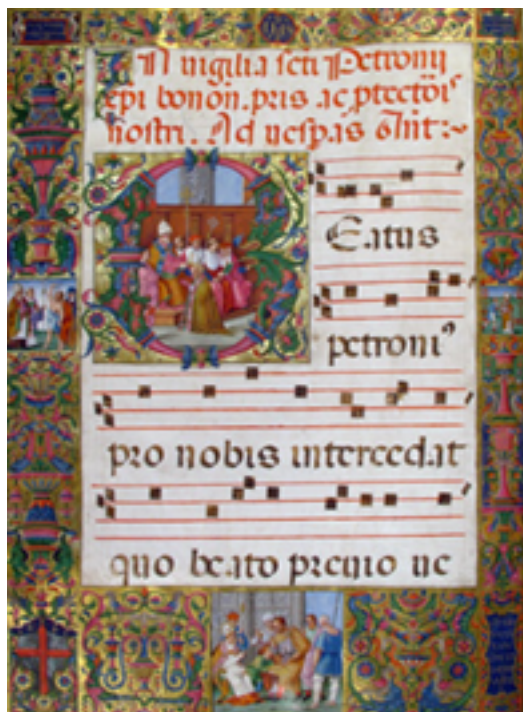 In uigilia scti Petronij
epi bonon. pris ac ptectois
nostri. Ad uespas Ant:~
Beatus
petroni9
pro nobis intercedat
quo beato premio ue